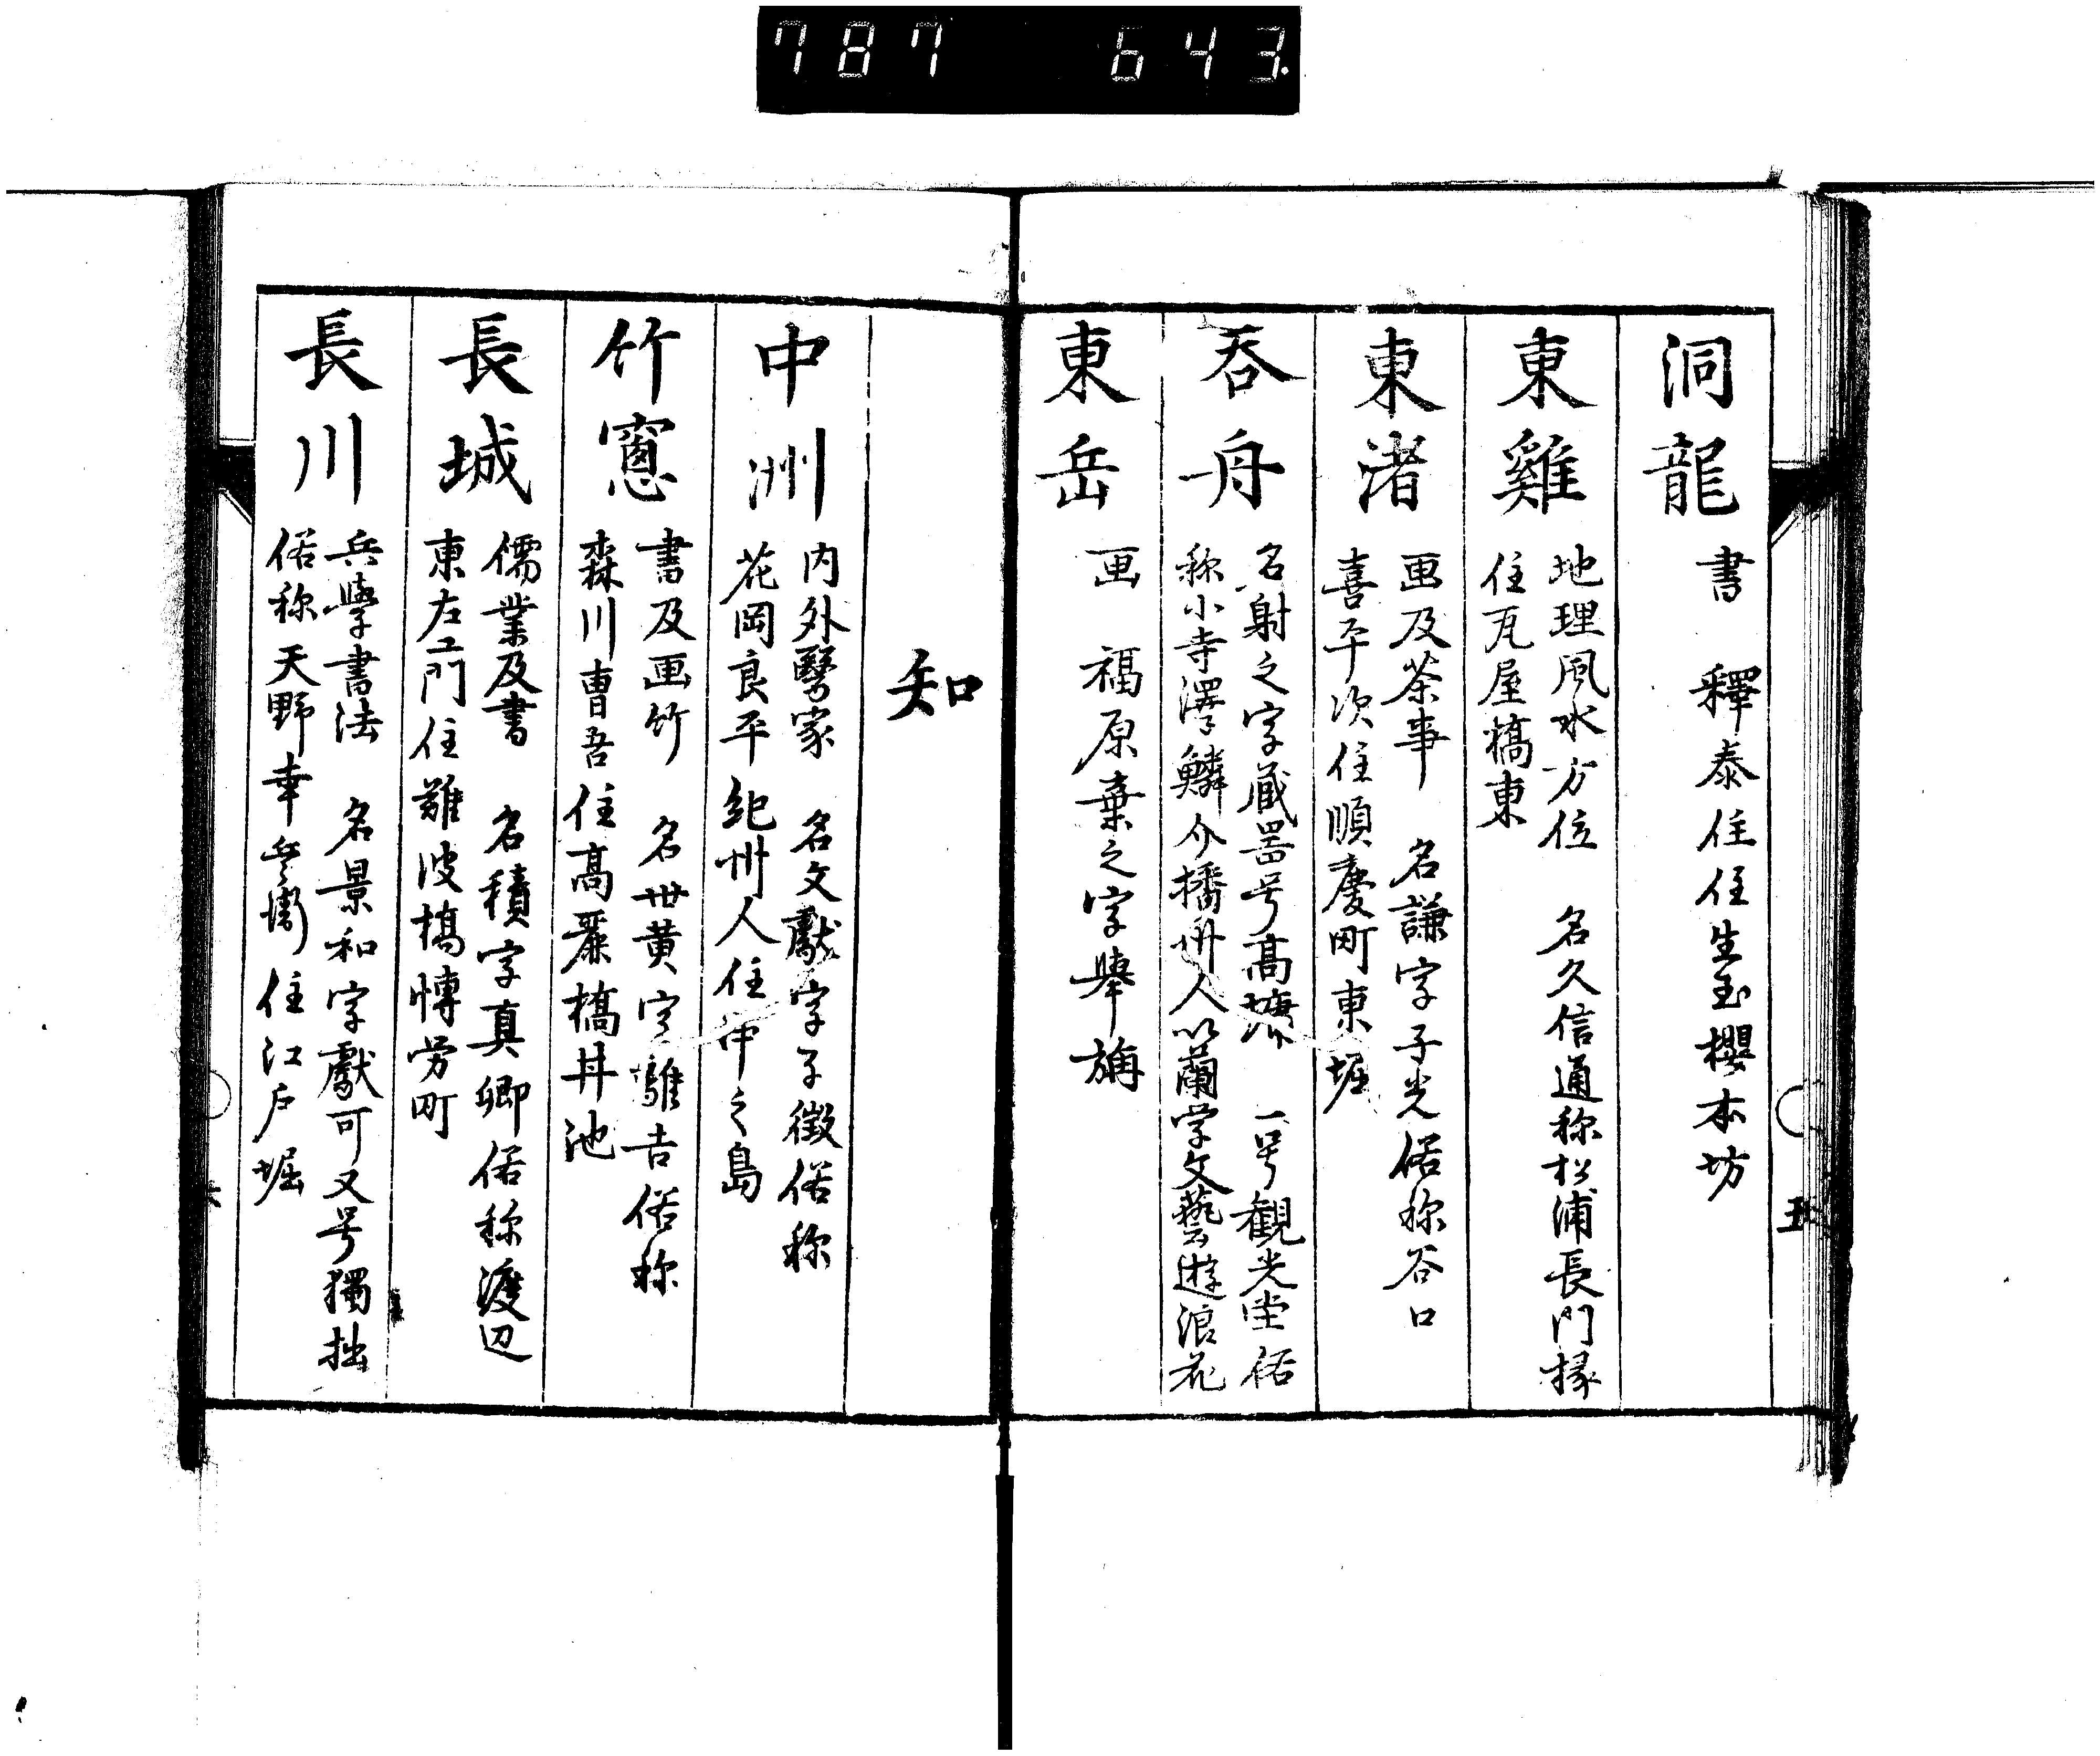 787 643.
洞龍
書 釋泰住住生玉櫻本坊
東雞
地理風水方位 名久信通称松浦長門掾
住瓦屋橋東
東渚
画及茶事 名謙字子光俗称谷口
喜平次住順慶町東堀
呑舟
名射之字蔵器号高墉 一号観光堂俗
称小寺澤鱗介播州人以蘭学文藝遊浪花
東岳
画 福原棄之字舉旃
五
知
中洲
内外醫家 名文獻字子徴俗称
花岡良平紀州人住中之島
竹窻
書及画竹 名世黄字離吉俗称
森川曹吾住高麗橋丼池
長城
儒業及書 名積字真卿俗称渡辺
東左エ門住難波橋博労町
長川
兵學書法 名景和字獻可又号獨拙
俗称天野幸兵衛住江戸堀
六